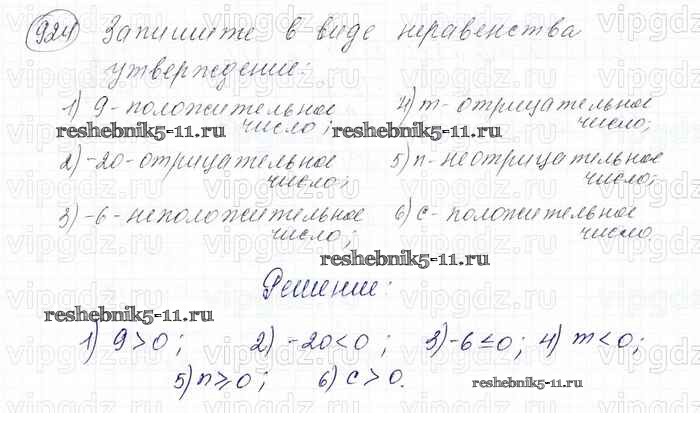 924 Запишите в виде неравенства
утверждение:
1) 9 - положительное число;
2) -20 - отрицательное число;
3) -6 - неположительное число;
4) m - отрицательное число;
5) n - неотрицательное число;
6) c - положительное число.
reshebnik5-11.ru
reshebnik5-11.ru
reshebnik5-11.ru
Решение:
reshebnik5-11.ru
1) 9>0; 2) -20<0; 3) -6≤0; 4) m<0;
5) n≥0; 6) c>0.
reshebnik5-11.ru
vipgdz.ru